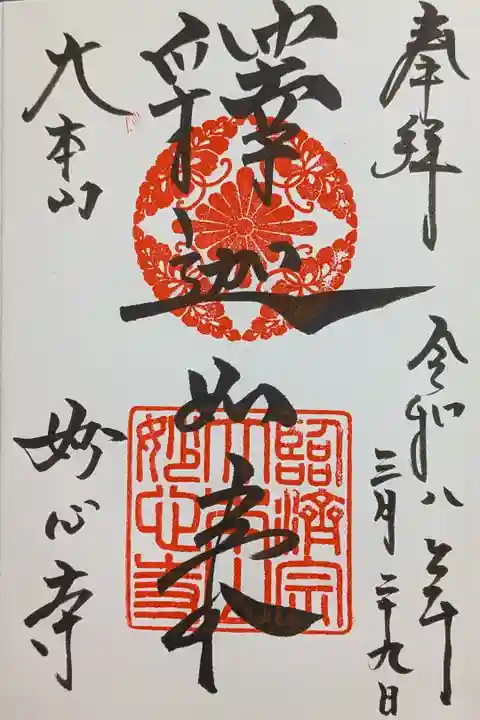 奉拝
令和八年
三月二十九日
釋迦如来
臨済宗
大本山
妙心寺
大本山
妙心寺